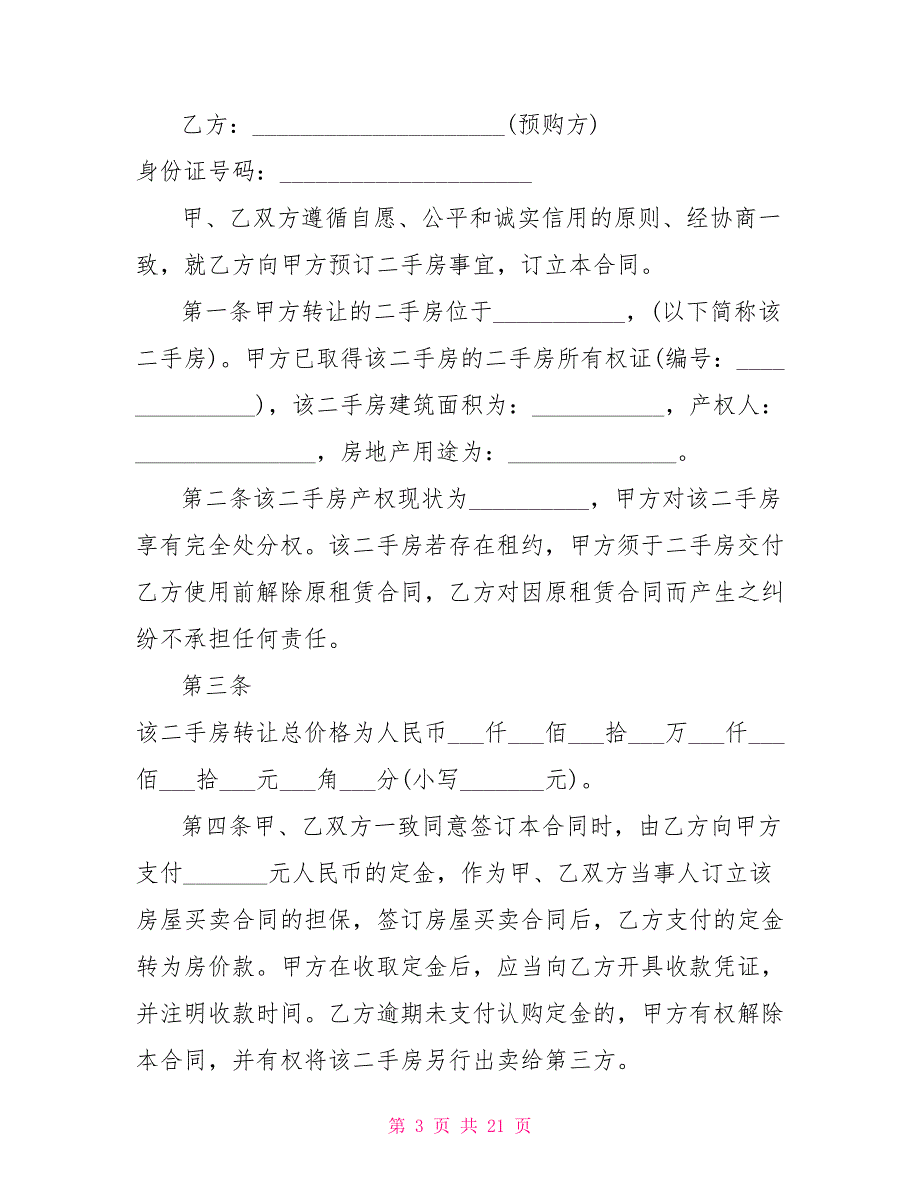 乙方：_____________________(预购方)
身份证号码：_____________________
甲、乙双方遵循自愿、公平和诚实信用的原则、经协商一
致，就乙方向甲方预订二手房事宜，订立本合同。
第一条甲方转让的二手房位于___________，(以下简称该
二手房)。甲方已取得该二手房的二手房所有权证(编号：____
__________)，该二手房建筑面积为：___________，产权人：
_______________，房地产用途为：______________。
第二条该二手房产权现状为__________，甲方对该二手房
享有完全处分权。该二手房若存在租约，甲方须于二手房交付
乙方使用前解除原租赁合同，乙方对因原租赁合同而产生之纠
纷不承担任何责任。
第三条
该二手房转让总价格为人民币___仟___佰___拾___万___仟___
佰___拾___元___角___分(小写_______元)。
第四条甲、乙双方一致同意签订本合同时，由乙方向甲方
支付_______元人民币的定金，作为甲、乙双方当事人订立该
房屋买卖合同的担保，签订房屋买卖合同后，乙方支付的定金
转为房价款。甲方在收取定金后，应当向乙方开具收款凭证，
并注明收款时间。乙方逾期未支付认购定金的，甲方有权解除
本合同，并有权将该二手房另行出卖给第三方。
第 3 页 共 21 页